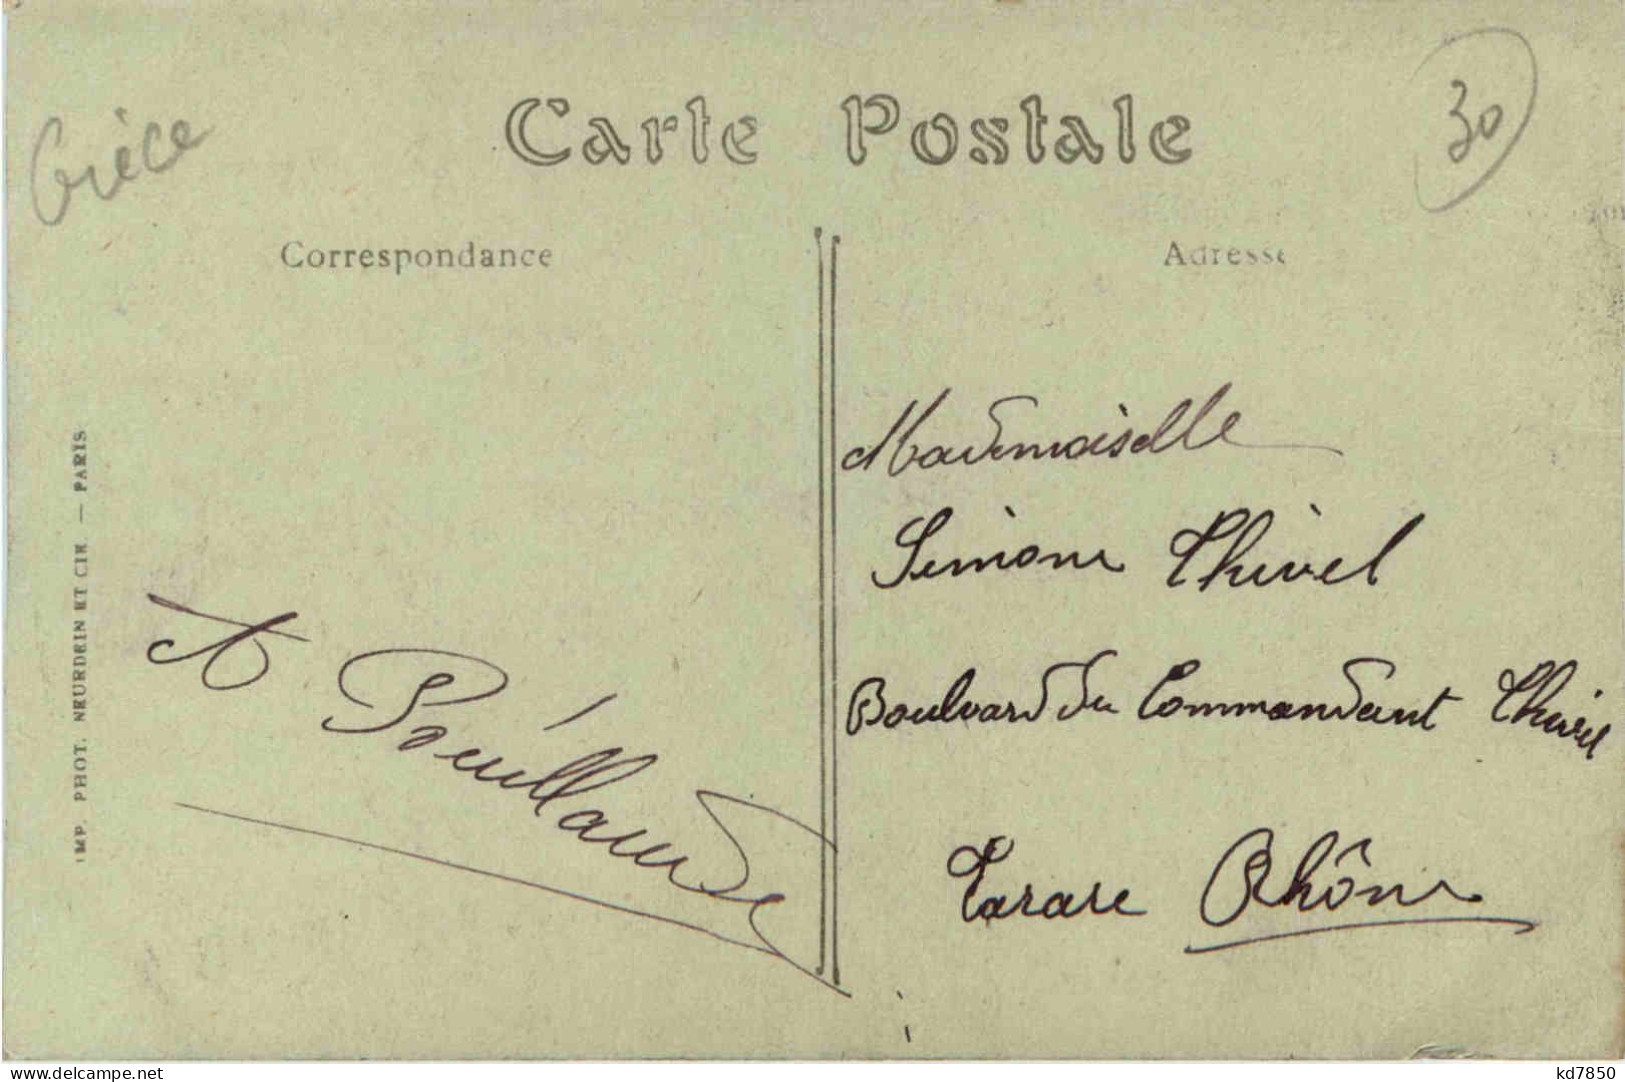 Grèce
30
Carte Postale
Correspondance
Adresse
IMP. PHOT. NEURDEIN ET CIE. — PARIS
Mademoiselle
Simone Thivel
Boulvard du Commandant Thivel
Tarare Rhône
A Pouillaude
delcampe.net
kd7850